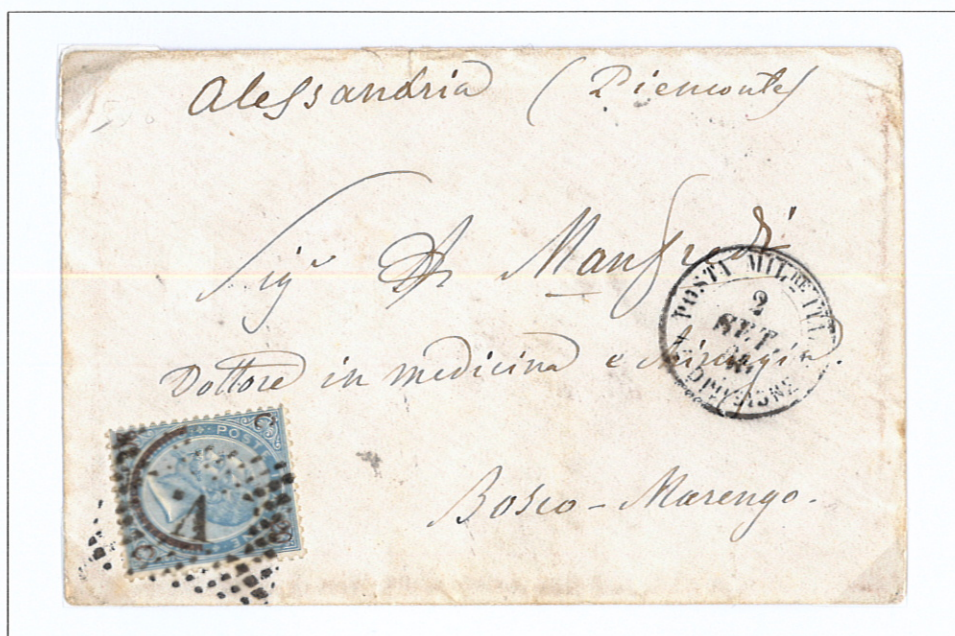 Alessandria (Piemonte)
Sig.r Dr Manfredi
Dottore in medicina e chirurgia.
Bosco-Marengo.
POSTA MIL.RE ITA
2
SET
DIVISIONE
POSTE
C
C
V